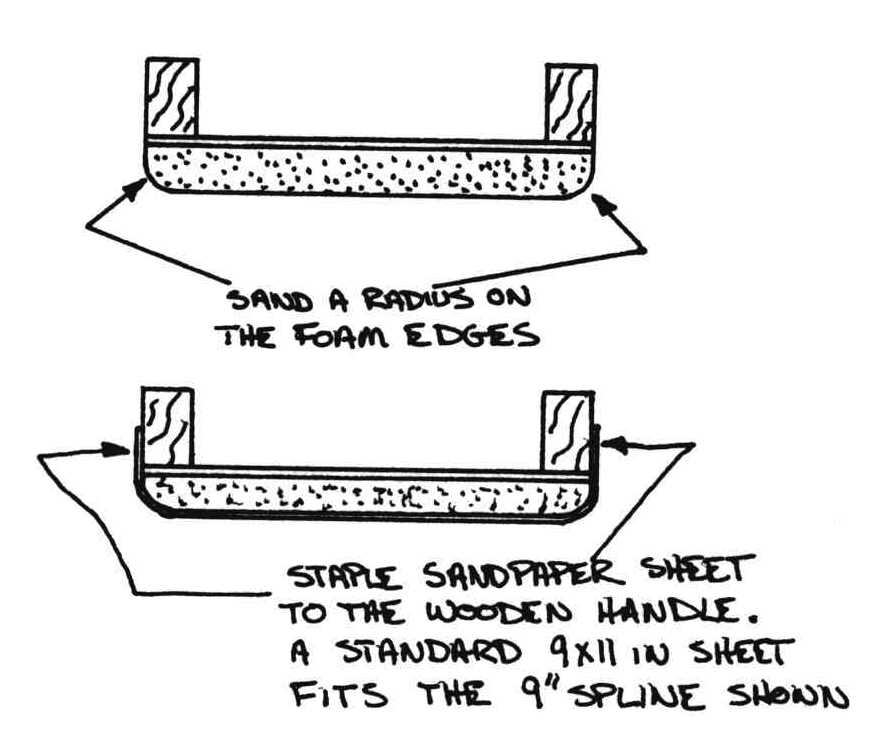 SAND A RADIUS ON
THE FOAM EDGES
STAPLE SANDPAPER SHEET
TO THE WOODEN HANDLE.
A STANDARD 9X11 IN SHEET
FITS THE 9" SPLINE SHOWN